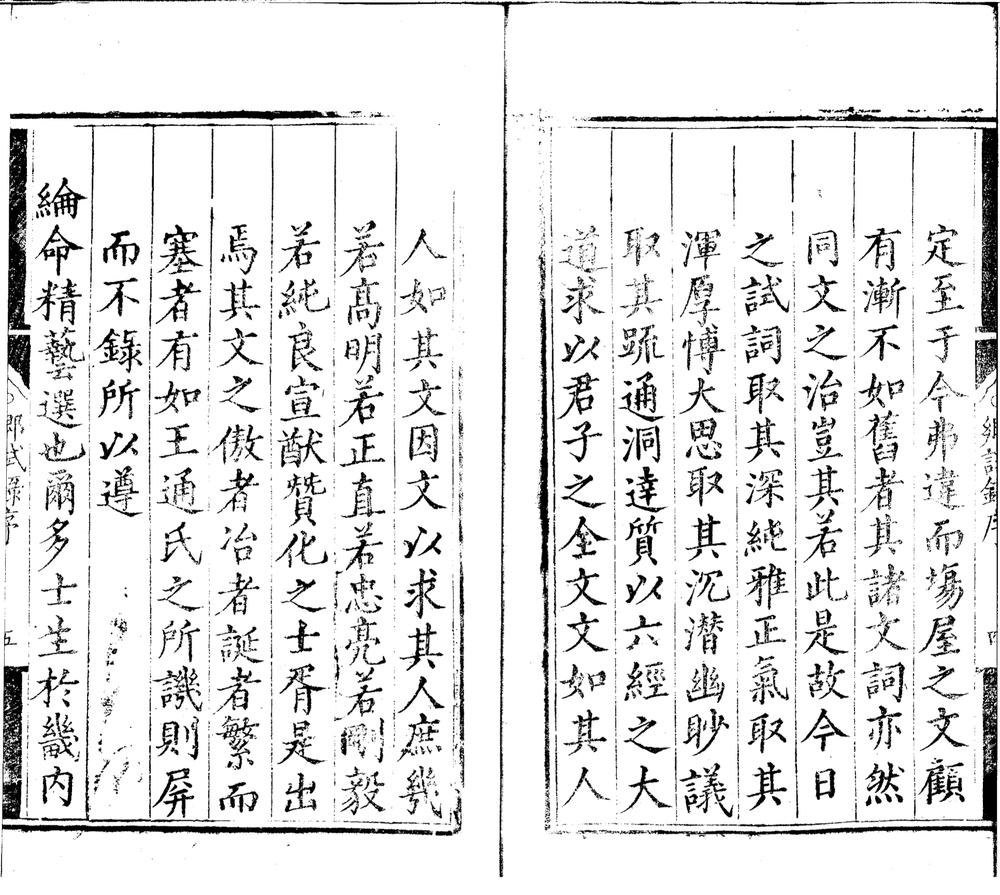 定至于今弗違而塲屋之文顧
有漸不如舊者其諸文詞亦然
同文之治豈其若此是故今日
之試詞取其深純雅正氣取其
渾厚博大思取其沉潛幽眇議
取其䟽通洞達質以六經之大
道求以君子之全文文如其人
鄉試錄序
四
人如其文因文以求其人庶幾
若髙明若正直若忠亮若剛毅
若純良宣猷贊化之士胥是出
焉其文之傲者冶者誕者繁而
塞者有如王通氏之所譏則屏
而不錄所以遵
綸命精藝選也爾多士生於畿内
鄉試錄序
五